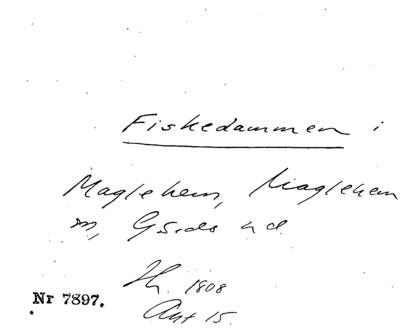 Fiskedammen i
Maglehem, Maglehem
sn, Gärds hd.
Th. 1808
Nr 7897.
Ant 15.